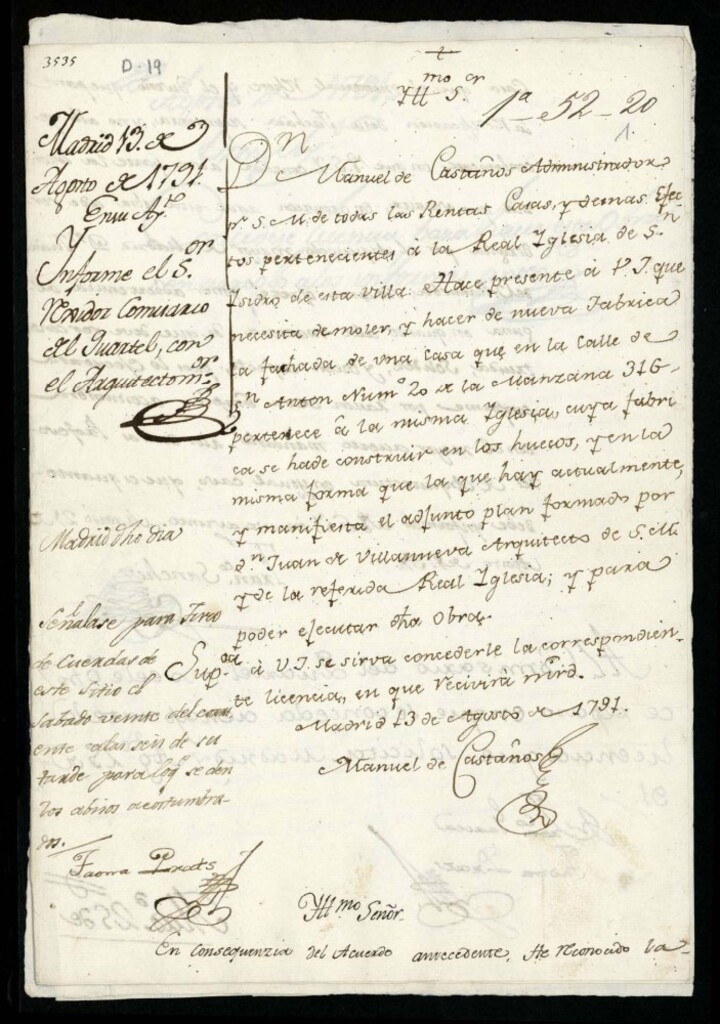 3535
D-19
Yll.mo S.or
1ª - 52 - 20
1.
Madrid 13. de
Agosto de 1791.
En su Ay.to
Y
Informe el S.or
Rexidor Comisario
del Quartel, con
el Arquitecto m.or
D.n Manuel de Castaños Administrador
p.r S. M. de todas las Rentas Casas, y demas Efec-
tos pertenecientes à la Real Yglesia de S.n
Isidro de esta villa: Hace presente à V. I. que
necesita demoler, y hacer de nueva fabrica
la fachada de una Casa que en la Calle de
S.n Anton Num.º 20 de la Manzana 316-
pertenece à la misma Yglesia, cuya fabri
ca se ha de construir en los huecos, y en la
misma forma que la que hay actualmente,
y manifiesta el adjunto plan formado por
d.n Juan de Villanueva Arquitecto de S. M.
y de la referida Real Yglesia; y para
poder ejecutar dha Obra,
Sup.ca à V. I. se sirva concederle la correspondien-
te licencia, en que recivirà mrd.
Madrid 13 de Agosto de 1791.
Manuel de Castaños
Madrid dho dia
Señalase para Tiro
de Cuerdas de
este Sitio el
Sabado veinte del cor-
riente a las seis de su
tarde para lo q.e se den
los abisos acostumbra-
dos.
Prats
Yll.mo Señor
En consequenzia del Acuerdo antecedente, he reconocido la-